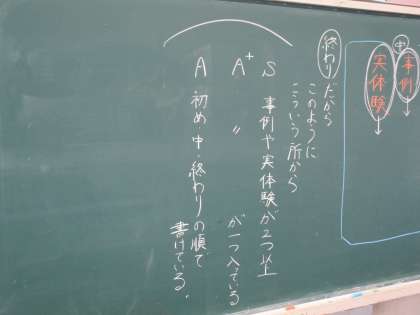 中
事例
実体験
終わり
だから
このように
こういう所から
S 事例や実体験が2つ以上
A⁺ 〃 が一つ入っている
A 初め・中・終わりの順で
書けている。